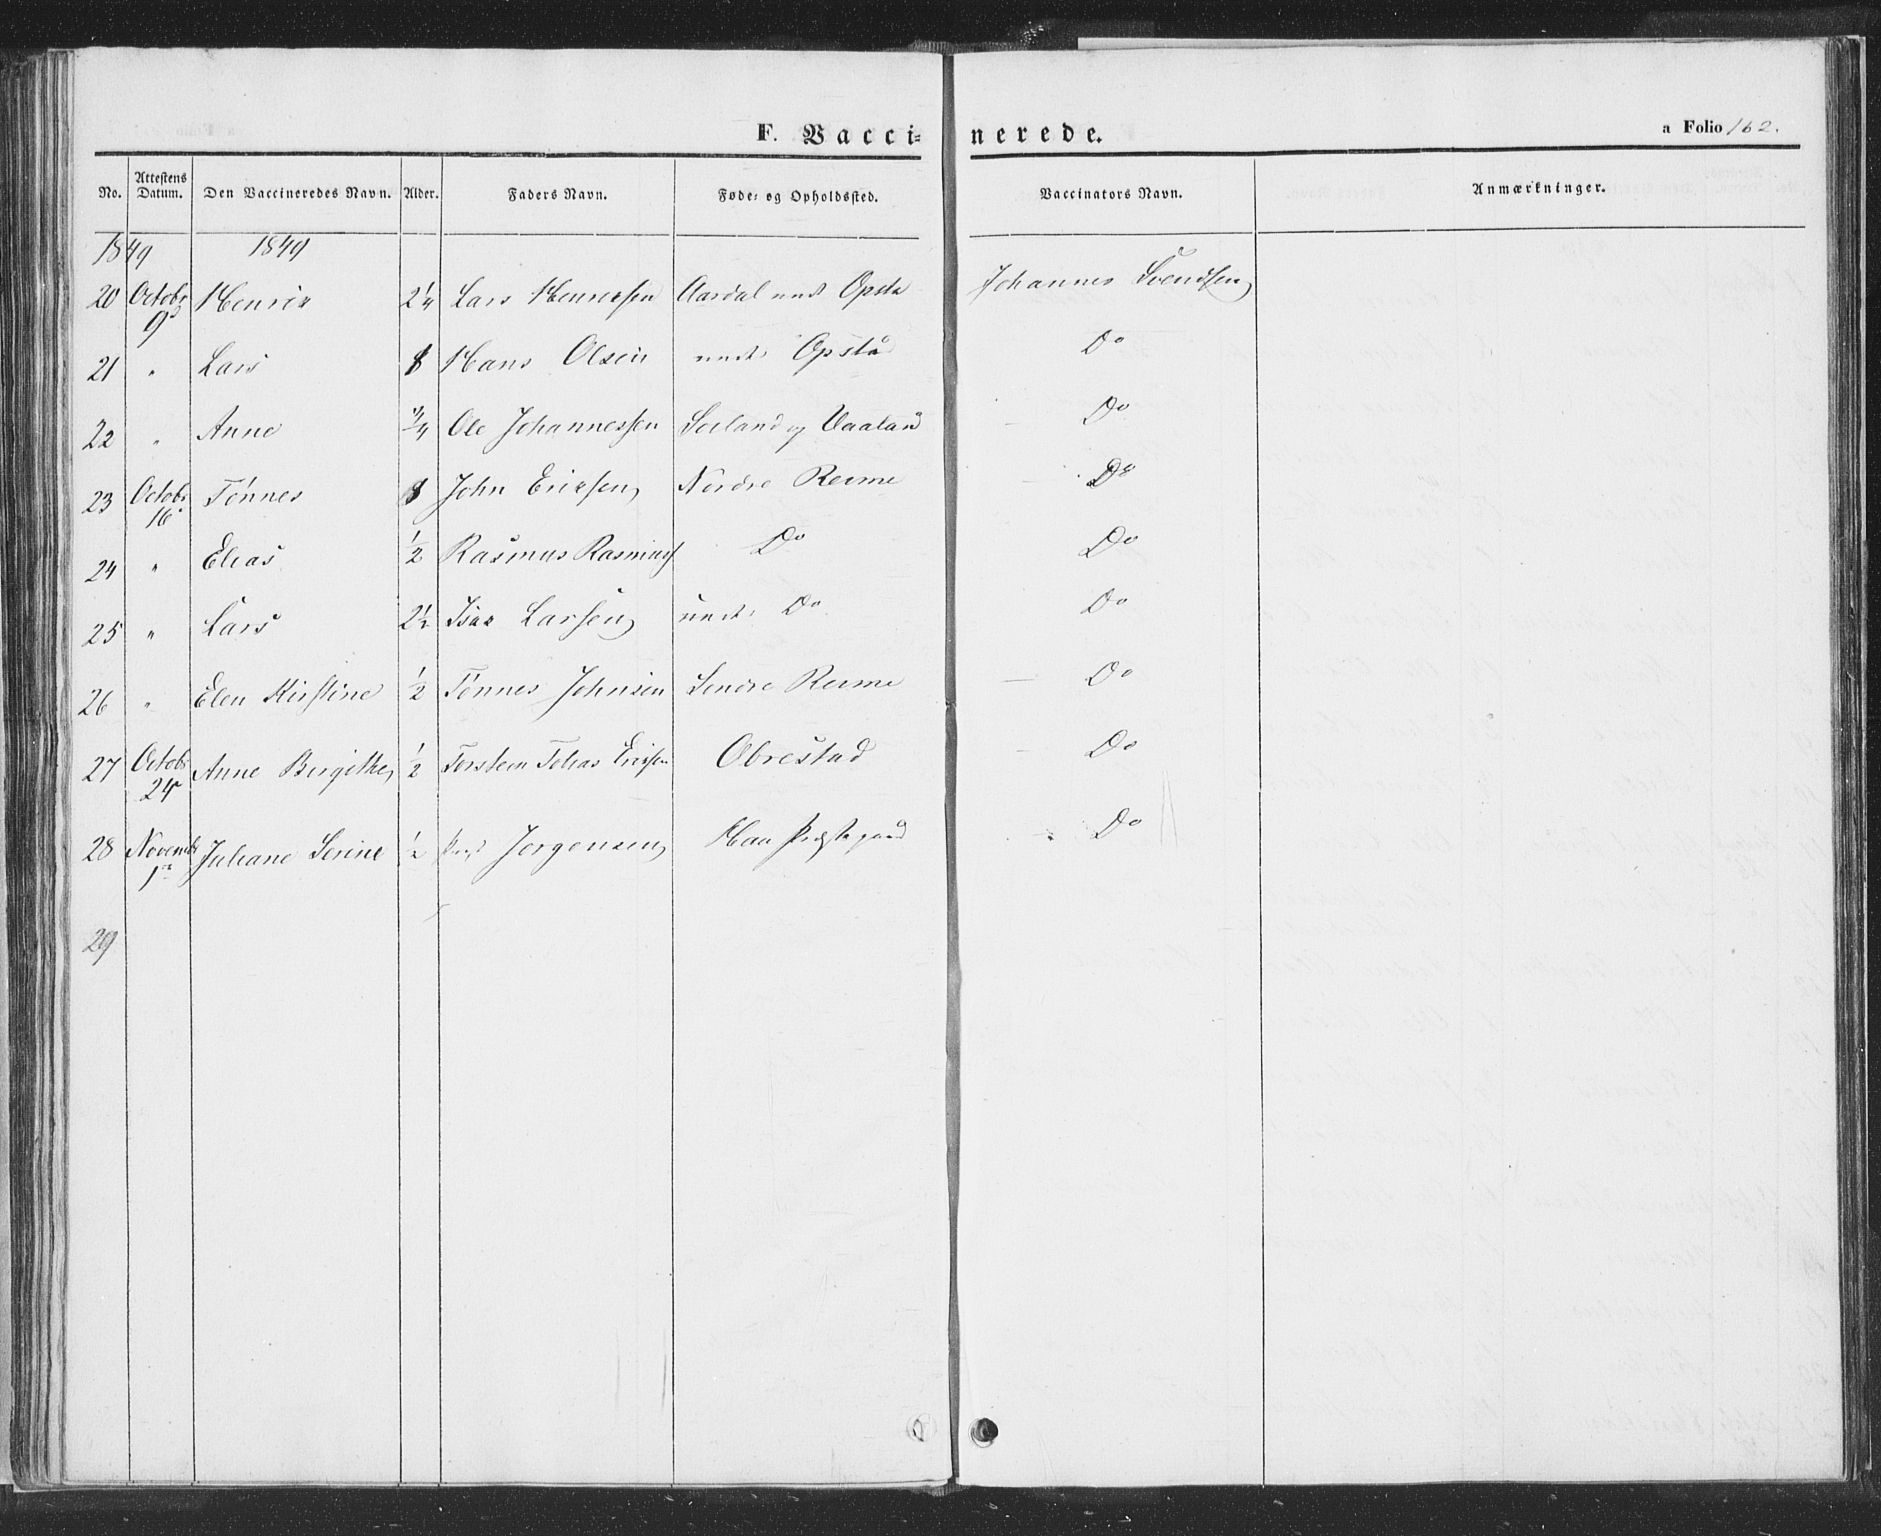 F. Vaccinerede.
a Folio 162.
No. Attestens Datum. Den Vaccineredes Navn. Alder. Faders Navn. Føde- og Opholdssted. Vaccinators Navn. Anmærkninger.
1849 1849
20 Octobr 9 Henrik 2¼ Lars Henriksen Aardal und Opsta Johannes Svendsen
21 " Lars Hans Olsen und Opstå Do
22 " Anne Ole Johannessen og Do
23 Octobr 16 Tønnes John Ericsen Nordre Reime Do
24 " Elias ½ Rasmus Rasmus Do Do
25 " Lars 2½ Isac Larsen und Do Do
26 " Elen Kirstine ½ Tønnes Johnsen Søndre Reime Do
27 Octobr 24 Anne Birgithe ½ Torsten Tobias Ericsen Obrestad Do
28 Novembr 1 Juliane Serine ½ Jørgensen Haa Præstegaard Do
29